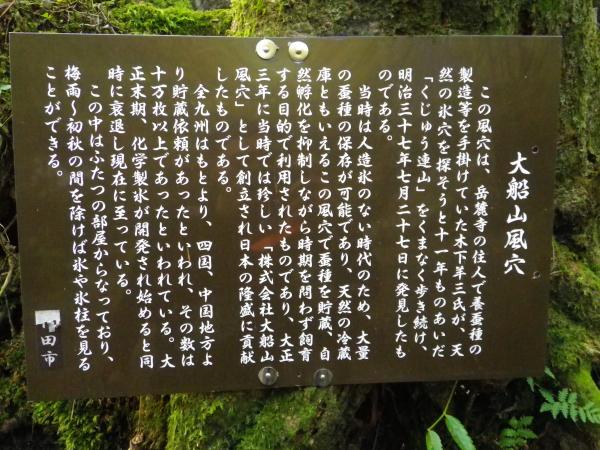 大船山風穴
この風穴は、岳麓寺の住人で養蚕種の
製造等を手掛けていた木下羊三氏が、天
然の氷穴を探そうと十一年ものあいだ
「くじゅう連山」をくまなく歩き続け、
明治三十七年七月二十七日に発見したも
のである。
当時は人造氷のない時代のため、大量
の蚕種の保存が可能であり、天然の冷蔵
庫ともいえるこの風穴で蚕種を貯蔵、自
然孵化を抑制しながら時期を問わず飼育
する目的で利用されたものであり、大正
三年に当時では珍しい「株式会社大船山
風穴」として創立され日本の隆盛に貢献
したものである。
全九州はもとより、四国、中国地方よ
り貯蔵依頼があったといわれ、その数は
十万枚以上であったといわれている。大
正末期、化学製氷が開発され始めると同
時に衰退し現在に至っている。
この中はふたつの部屋からなっており、
梅雨～初秋の間を除けば氷や氷柱を見る
ことができる。
田市